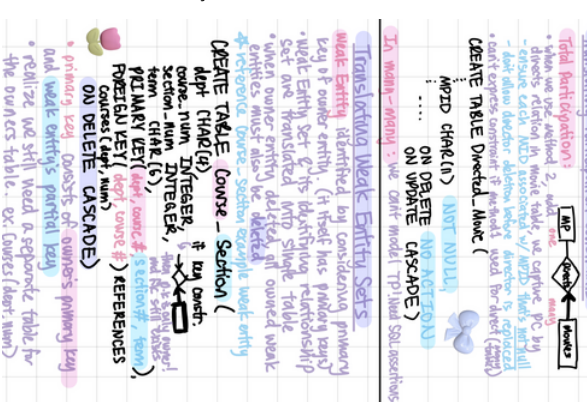 Total Participation:
• when we use method 2,
directs relation in Movie table, we capture PC by
- ensure each MID associated w/ MPID that's not null
- don't allow director deletion before director is replaced
• can't express constraint if method 1 used for direct
MP
one
Directs
many
Movies
CREATE TABLE Directed_Movie (
MPID CHAR(11) NOT NULL,
....
ON DELETE NO ACTION
ON UPDATE CASCADE)
In many-many: we can't model TP! need SQL assertions
Translating Weak Entity Sets
Weak Entity identified by considering primary
key of owner entity. (it itself has primary key)
• Weak Entity set & its identifying relationship
set are translated into single table
• when owner entity deleted, all owned weak
entities must also be deleted
* reference course-section example weak entity
CREATE TABLE Course_Section (
dept CHAR(4),
course_num INTEGER,
section_num INTEGER,
term CHAR(6),
if key constr.
PRIMARY KEY (dept, course #, section#, term),
FOREIGN KEY (dept, course #) REFERENCES
Courses (dept, num)
ON DELETE CASCADE)
• primary key consists of owner's primary key
and weak entity's partial key
• realize we still need a separate table for
the owners table. ex Courses (dept, num)